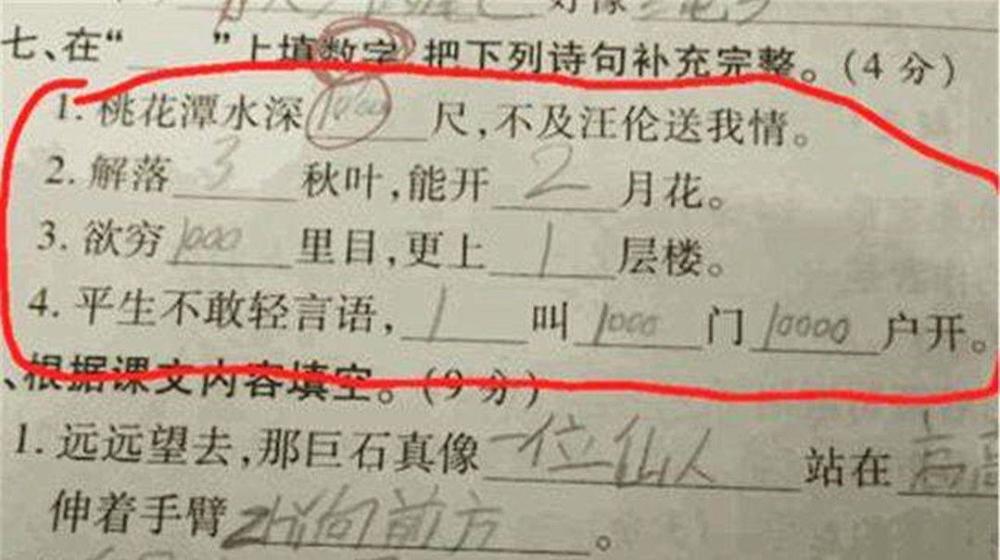 好像
七、在“____”上填数字,把下列诗句补充完整。(4分)
1.桃花潭水深1000尺,不及汪伦送我情。
2.解落3秋叶,能开2月花。
3.欲穷1000里目,更上1层楼。
4.平生不敢轻言语,1叫1000门10000户开。
、根据课文内容填空。(9分)
1.远远望去,那巨石真像一位仙人站在高高
伸着手臂指向前方。